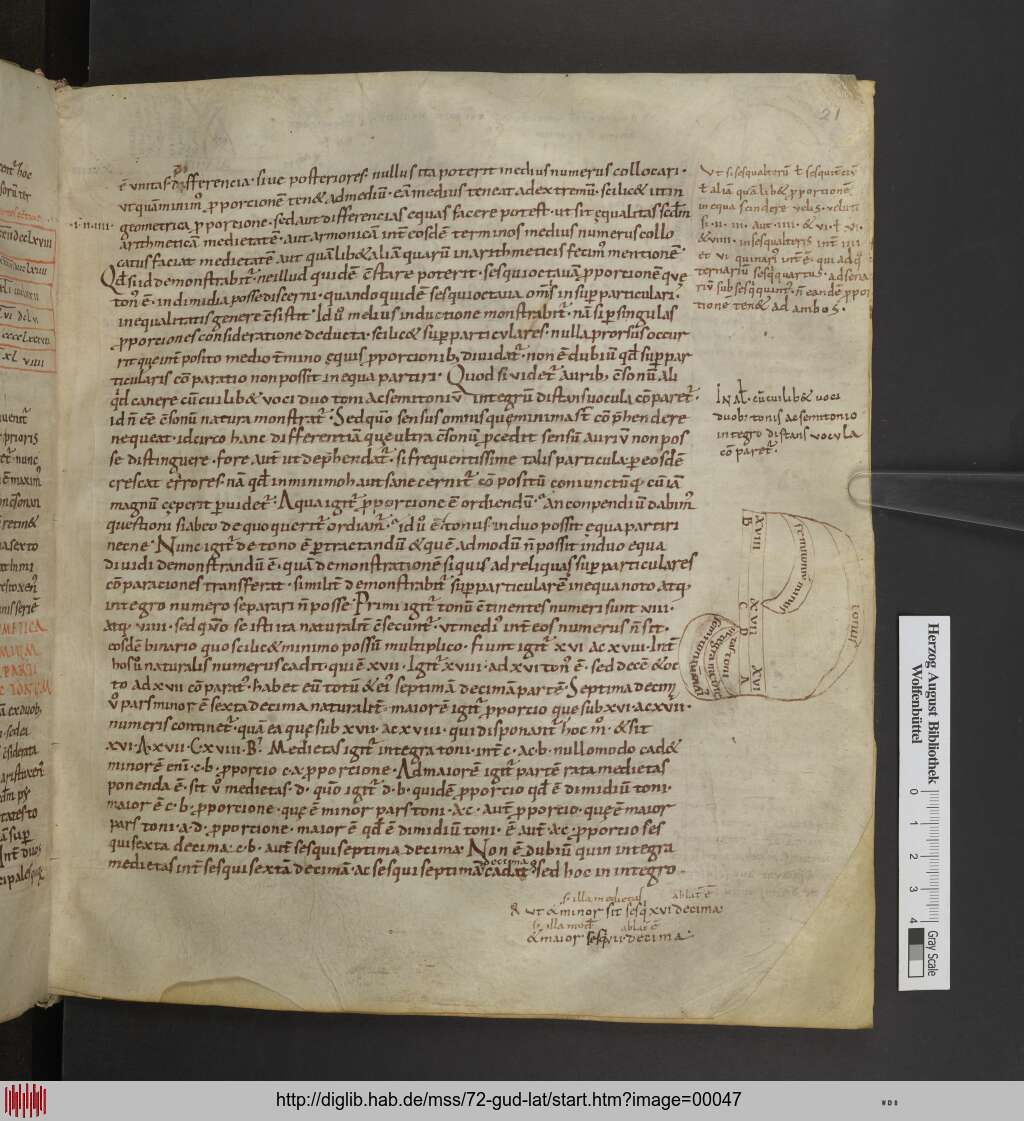 21
ē unitas· differencia· siue posteriores· nullus ita poterit medius numerus collocari·
ut quam minimꝰ ꝓporcionē ten& ad mediū· eā medius teneat ad extremū· scilic& ut in
geometrica ꝓporcione· sed aut differencias equas facere potest· ut sit ęqualitas scdm̄
arithmeticā medietatē· aut armonicā int̄ eosdē terminos medius numerus collo
catus faciat medietatē aut quālib& aliam quarū in arithmeticis fecim᷒ mentionē·
Qd̄ si id demonstrabit᷒· ne illud quidē ēstare poterit· sesquioctauā ꝓporcionē quę
ton᷒ ē· in dimidia posse discerni· quando quidē sesquioctaua omīs in sup̱particulari·
inequalitatis genere ēsistit· Id ū melius inductione monstrabit᷒· nā si p̱ singulas
ꝓporciones consideratione deducta· scilic& sup̱particulares· nulla prorsus occur
rit que int̄ posito medio t̄mino ęquis ꝓporcionib; diuidat᷒· non ē dubiū qd̄ sup̱par
ticularis cōparatio non possit in equa partiri· Quod si uidet᷒ aurib; ēsonū ali
qd̄ canere cū cuilib& uoci duo toni ac semitoniū integrū distans uocula cōparet᷒·
id n̄ eē ēsonū natura monstrat᷒· Sed quō sensus omnis quę minima st̄ cōp̱hendere
nequeat· idcirco hanc differentiā quę ultra ēsonū ꝓcedit sensū auriū non pos
se distinguere· fore aut̄ ut dep̱hendat᷒· si frequentissime talis particula· p̱ eosdē
crescat errores· nā qd̄ in minimo haut sane cernit᷒ cōpositū coniunctūq· cū iā
magnū cęperit p̱uidet᷒· A qua igit᷒ ꝓporcione ē ordiendū· An conpendiū dabim᷒
questioni si ab eo de quo querit᷒ ordiam᷒· id ū ē tonus· in duo possit equa partiri
necne· Nunc igit᷒ de tono ē p̱tractandū & quē admodū n̄ possit in duo equa
diuidi demonstrandū ē· quā demonstrationē si quis ad reliquas sup̱particulares
cōparaciones transferat· similit̄ demonstrabit᷒ sup̱particularē in equa noto atq;
integro numero separari n̄ posse· Primi igit᷒ tonū ētinentes numeri sunt viii·
atq· viiii· sed quō se isti ita naturalit̄ ēsecunt᷒· ut medi᷒ int̄ eos numerus n̄ sit·
eosdē binario quo scilic& minimo possū multiplico· fiunt igit᷒ xvi ac xviii· Int̄
hos ū naturalis numerus cadit qui ē xvii· Igit᷒ xviii· ad xvi ton᷒ ē· sed decē & oc
to ad xvii cōparat᷒· habet eū totū & ei᷒ septimā decimā partē· Septima decim
ū pars minor ē sexta decima naturalit̄· maior ē igit᷒ ꝓporcio que sub xvi· ac xvii·
numeris continet᷒· quā ea que sub xvii· ac xviii· qui disponant᷒ hoc m̊· & sit
xvi· A· xvii· C· xviii· B· Medietas igit᷒ integra toni· int̄ c· ac· b· nullo modo cad&
minor ē eni᷒· c· b· ꝓporcio· c· a· ꝓporcione· Ad maiorē igit᷒ partē rata medietas
ponenda ē· sit ū medietas· d· quō igit᷒ d· b· quidē ꝓporcio qd̄ ē dimidiū toni·
maior ē c· b· ꝓporcione· quę ē minor pars toni· a·c· aut̄ ꝓporcio· quę ē maior
pars toni· a· d· ꝓporcione· maior ē qd̄ ē dimidiū toni· ē aut̄ a·c· ꝓporcio ses
quisexta decima· c· b· aut̄ sesqui septima decima· Non ē dubiū quin integra
decima
medietas int̄ sesqui sextā decimā· ac sesqui septimā cadat· sed hoc in integro·
s· illa medietas ablat᷒ ē
& ut & minor sit sesq̇ xvi decima·
s· illa med̄ ablat᷒ ē
& maior sesq̇ xvii· decima·
·i·ii·iiii·
Ut si sesqualterū t̄ sesquit̄ciū
t̄ aliā quālib& ꝓporcionē
in equa scindere uelis· ueluti
si· ii· iii· aut· iiii· & vi· t̄ vi·
& viiii· in sesqualteris int̄ iiii
et vi quinari᷒ int̄ ē· qui ad q
ternariū sesq̇quartus· ad sena
riū subsesq̇quint᷒· n̄ eandē ꝓpor
tione ten& ad ambos·
In al̄· cū cuilib& uoci
duob· tonis ac semitonio
integro distans uocula
cōparet᷒·
XVIII
B
XVII
C
D
XVI
A
semitoniū minus
tonus
http://diglib.hab.de/mss/72-gud-lat/start.htm?image=00047
Herzog August Bibliothek
Wolfenbüttel
0 1 2 3 4
Gray Scale